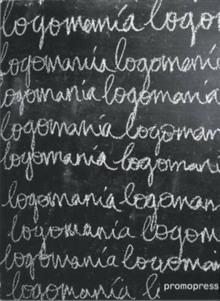 logomanía logo
logomanía logomaní
logomanía logomanía
logomanía logoman
logomanía logomanía
logomanía logoman
logomanía logom
logomanía logoman
logomanía l
promopress